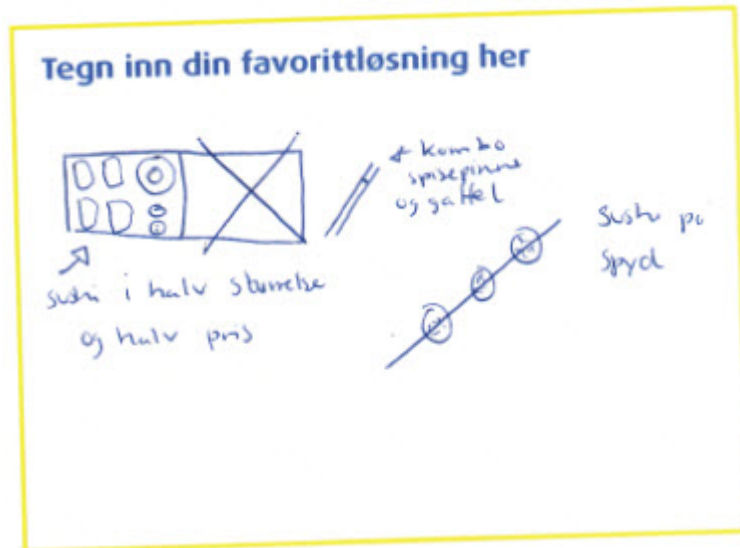 Tegn inn din favorittløsning her
← kombo
spisepinne
og gaffel
sushi i halv størrelse
og halv pris
Sushi på
spyd